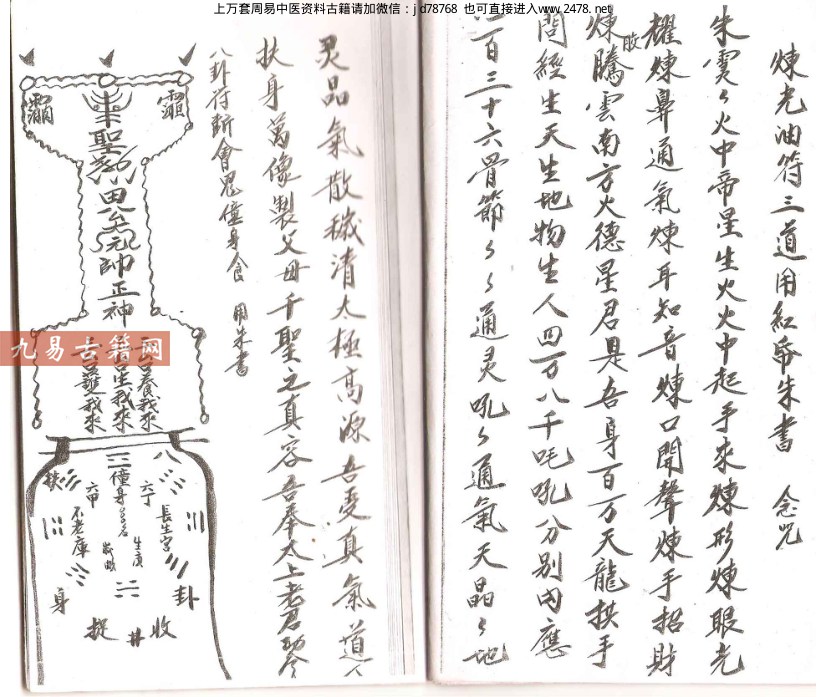 上万套周易中医资料古籍请加微信：jd78768 也可直接进入www.2478.net
煉光油符三道用紅帋朱書 念咒
朱雯々火中帝星生火火中起手來煉形煉眼光
耀煉鼻通氣煉耳知音煉口開聲煉手招財
煉腳騰雲南方火德星君是吾身百万天龍拱手
問經生天生地物生人四万八千毛吼分別内應
百三十六骨節々々通灵吼々通氣天晶々地
灵晶氣散穢清太極高源吾受真氣道人
扶身萬像製父母千聖之真容吾奉太上老君勅令
八卦符斬會鬼僮身食 用朱書
聖
田公元帥正神
養我來
生我來
我來
九易古籍网
八
卦
扶
身
僮身
六丁
六甲
長生宮
不老庫
生庚
收
井
捉